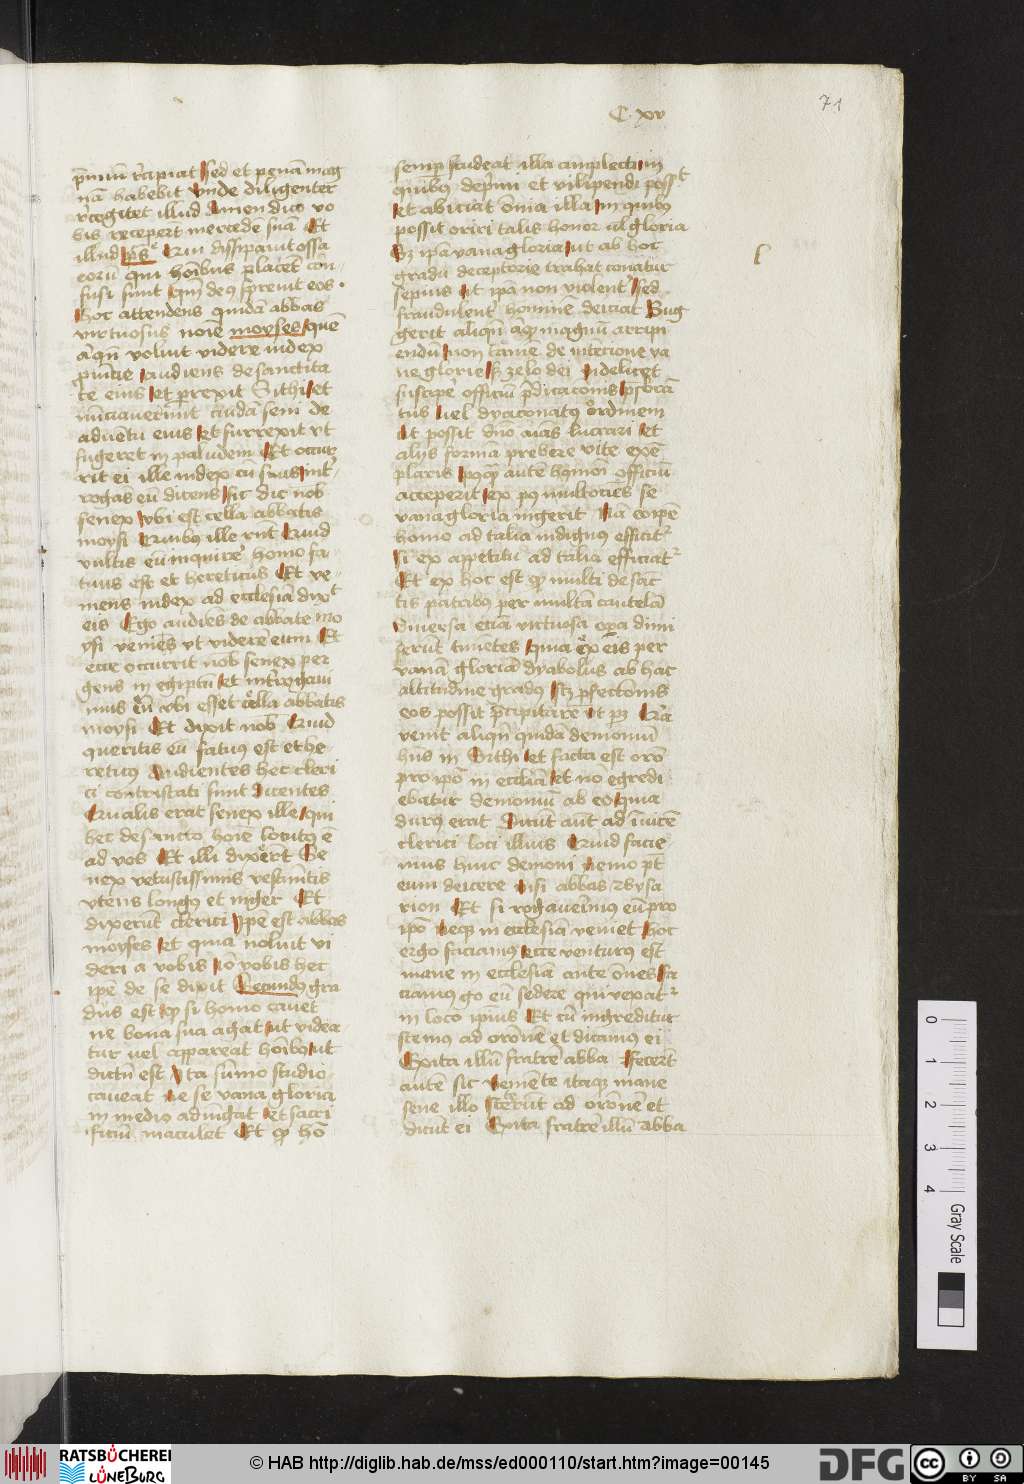 71
C. xv
p̄miū recipiat Sed et penā mag
nā habebit vnde diligenter
recogitet illud Amen dico vo
bis recepert mercedē suā Et
illud ps̄ Qui dissipavit ossa
eorū qui hoībus placēt cōn-
fusi sunt qm̄ deus sprevit eos ·
Hoc attendens quidā abbas
virtuosus noīe moyses quē
aliqn̄ voluit videre iudex
ꝓuincie audiens de sanctita
te eius et prexit Sithi et
nūctiauerūnt cuidā seni de
aduentu eius et surrexit vt
fugeret in paludem Et occur
rit ei ille iudex cū suis int̄
rogās eū dicens Sic dic nob
senex vbi est cella abbatis
moysi Quibus ille rn̄t Quid
vultis eū inquire homo fa-
tuus est et hereticus Et ve-
niens iudex ad ecclesiā dixt
eis Ego audiēs de abbate mo
ysi veniēs vt viderē eum Et
ecce occurrit nob senex per-
gens in egiptū et int̄rogaui
mus eū vbi esset cella abbatis
moysi Et dixit nob Quid
queritis eū fatuus est et he-
reticus Audientes hec cleri
ci contristati sunt dicentes
Qualis erat senex ille qui
hec de sancto hoīe locutus ē
ad vos Et illi dixerūt Se
nex vetustissimis vestimētis
vtens longus et niger Et
dixerūt clerici Ipse est abbas
moyses et quia noluit vi
deri a vobis iō vobis hec
ipe de se dixit Secundus gra
dus est ꝙ si homo cavet
ne bona sua agat ut videa-
tur uel appareat hoībus ut
dictū est Ita sūmo studio
caveat ne se vana gloria
in medio adiugat et sacri
ficiū maculet Et ꝙ hō
semp studeat illa amplecti in
quibus deprimi et vilipendi posst
et abiciat oīnia illa in quibus
possit oriri talis honor ul gloria
Sz ipā vana gloria ut ab hoc
gradu deceptorie trahat conatur
sepius Et ipā non violent Sed
fraudulent hominē deiciat Sug
gerit aliqn̄ aliqd magnū arripi
endū non tamē de intencione va
ne glorie Sz zelo dei videlicet
suscipe officiū p̄dicacionis psbita
tus uel dyaconatus ordinem
Ut possit dn̄o aīas lucrari et
alijs forma prebere vite exē
plaris postꝙ autē hmōi officiū
acceperit ex pꝰ multociēs se
vana gloria ingerit Na eoipē
homo ad talia indignus efficitr
si ex appetitu ad talia efficiatr
Et ex hoc est ꝙ multi de sāc
tis patribus per multā cautelā
diuersa etiā virtuosa opa dimi
serūt timētes quia ex eis per
vanā gloriā dyabolus ab hac
altitudine gradus Sz pfectionis
eos possit p̄cipitare Ut pz Na
venit aliqn̄ quidā demoniū
hn̄s in Sithi et facta est orō
pro ipō in ecclīa et no egredi
ebatur demoniū ab eo quia
durus erat Dicūt aūt ad iuicē
clerici loci illius Quid facie-
mus huic demoni nemo pt
eum deicere nisi abbas Bysa
rion Et si rogauerimus eū pro
ipō neqz in ecclesiā veniet hoc
ergo faciamus ecce venturus est
mane in ecclesiā ante ōnes fa
ciamus go eū sedere qui vexatr
in loco ipius Et cū ingreditur
stemus ad orōnē et dicamus ei
Excita illū fratrē abba Fecerūt
autē sic veniēte itaqz mane
sene illo steterūt ad orōnē et
dicūt ei Excita fratrē illū abba
0
1
2
3
4
Gray Scale
RATSBÜCHEREI
LÜNEBURG
© HAB http://diglib.hab.de/mss/ed000110/start.htm?image=00145
DFG
cc
BY SA